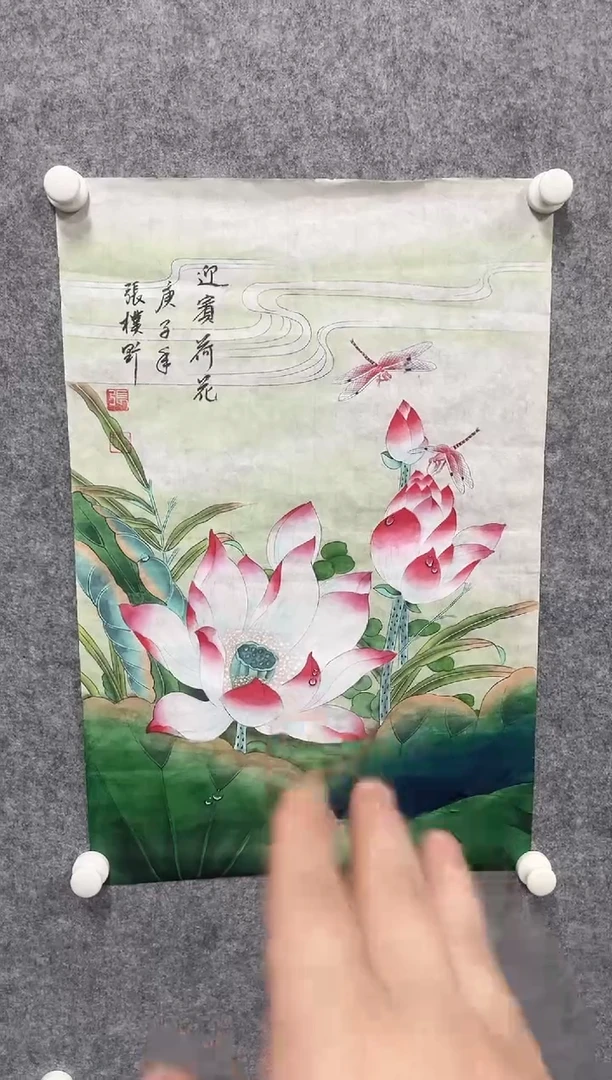 迎賓荷花
庚子年
張樸野